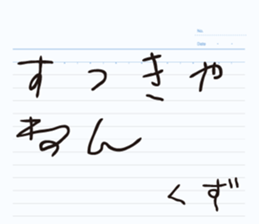 No.
Date
すっきや
ねん
くず